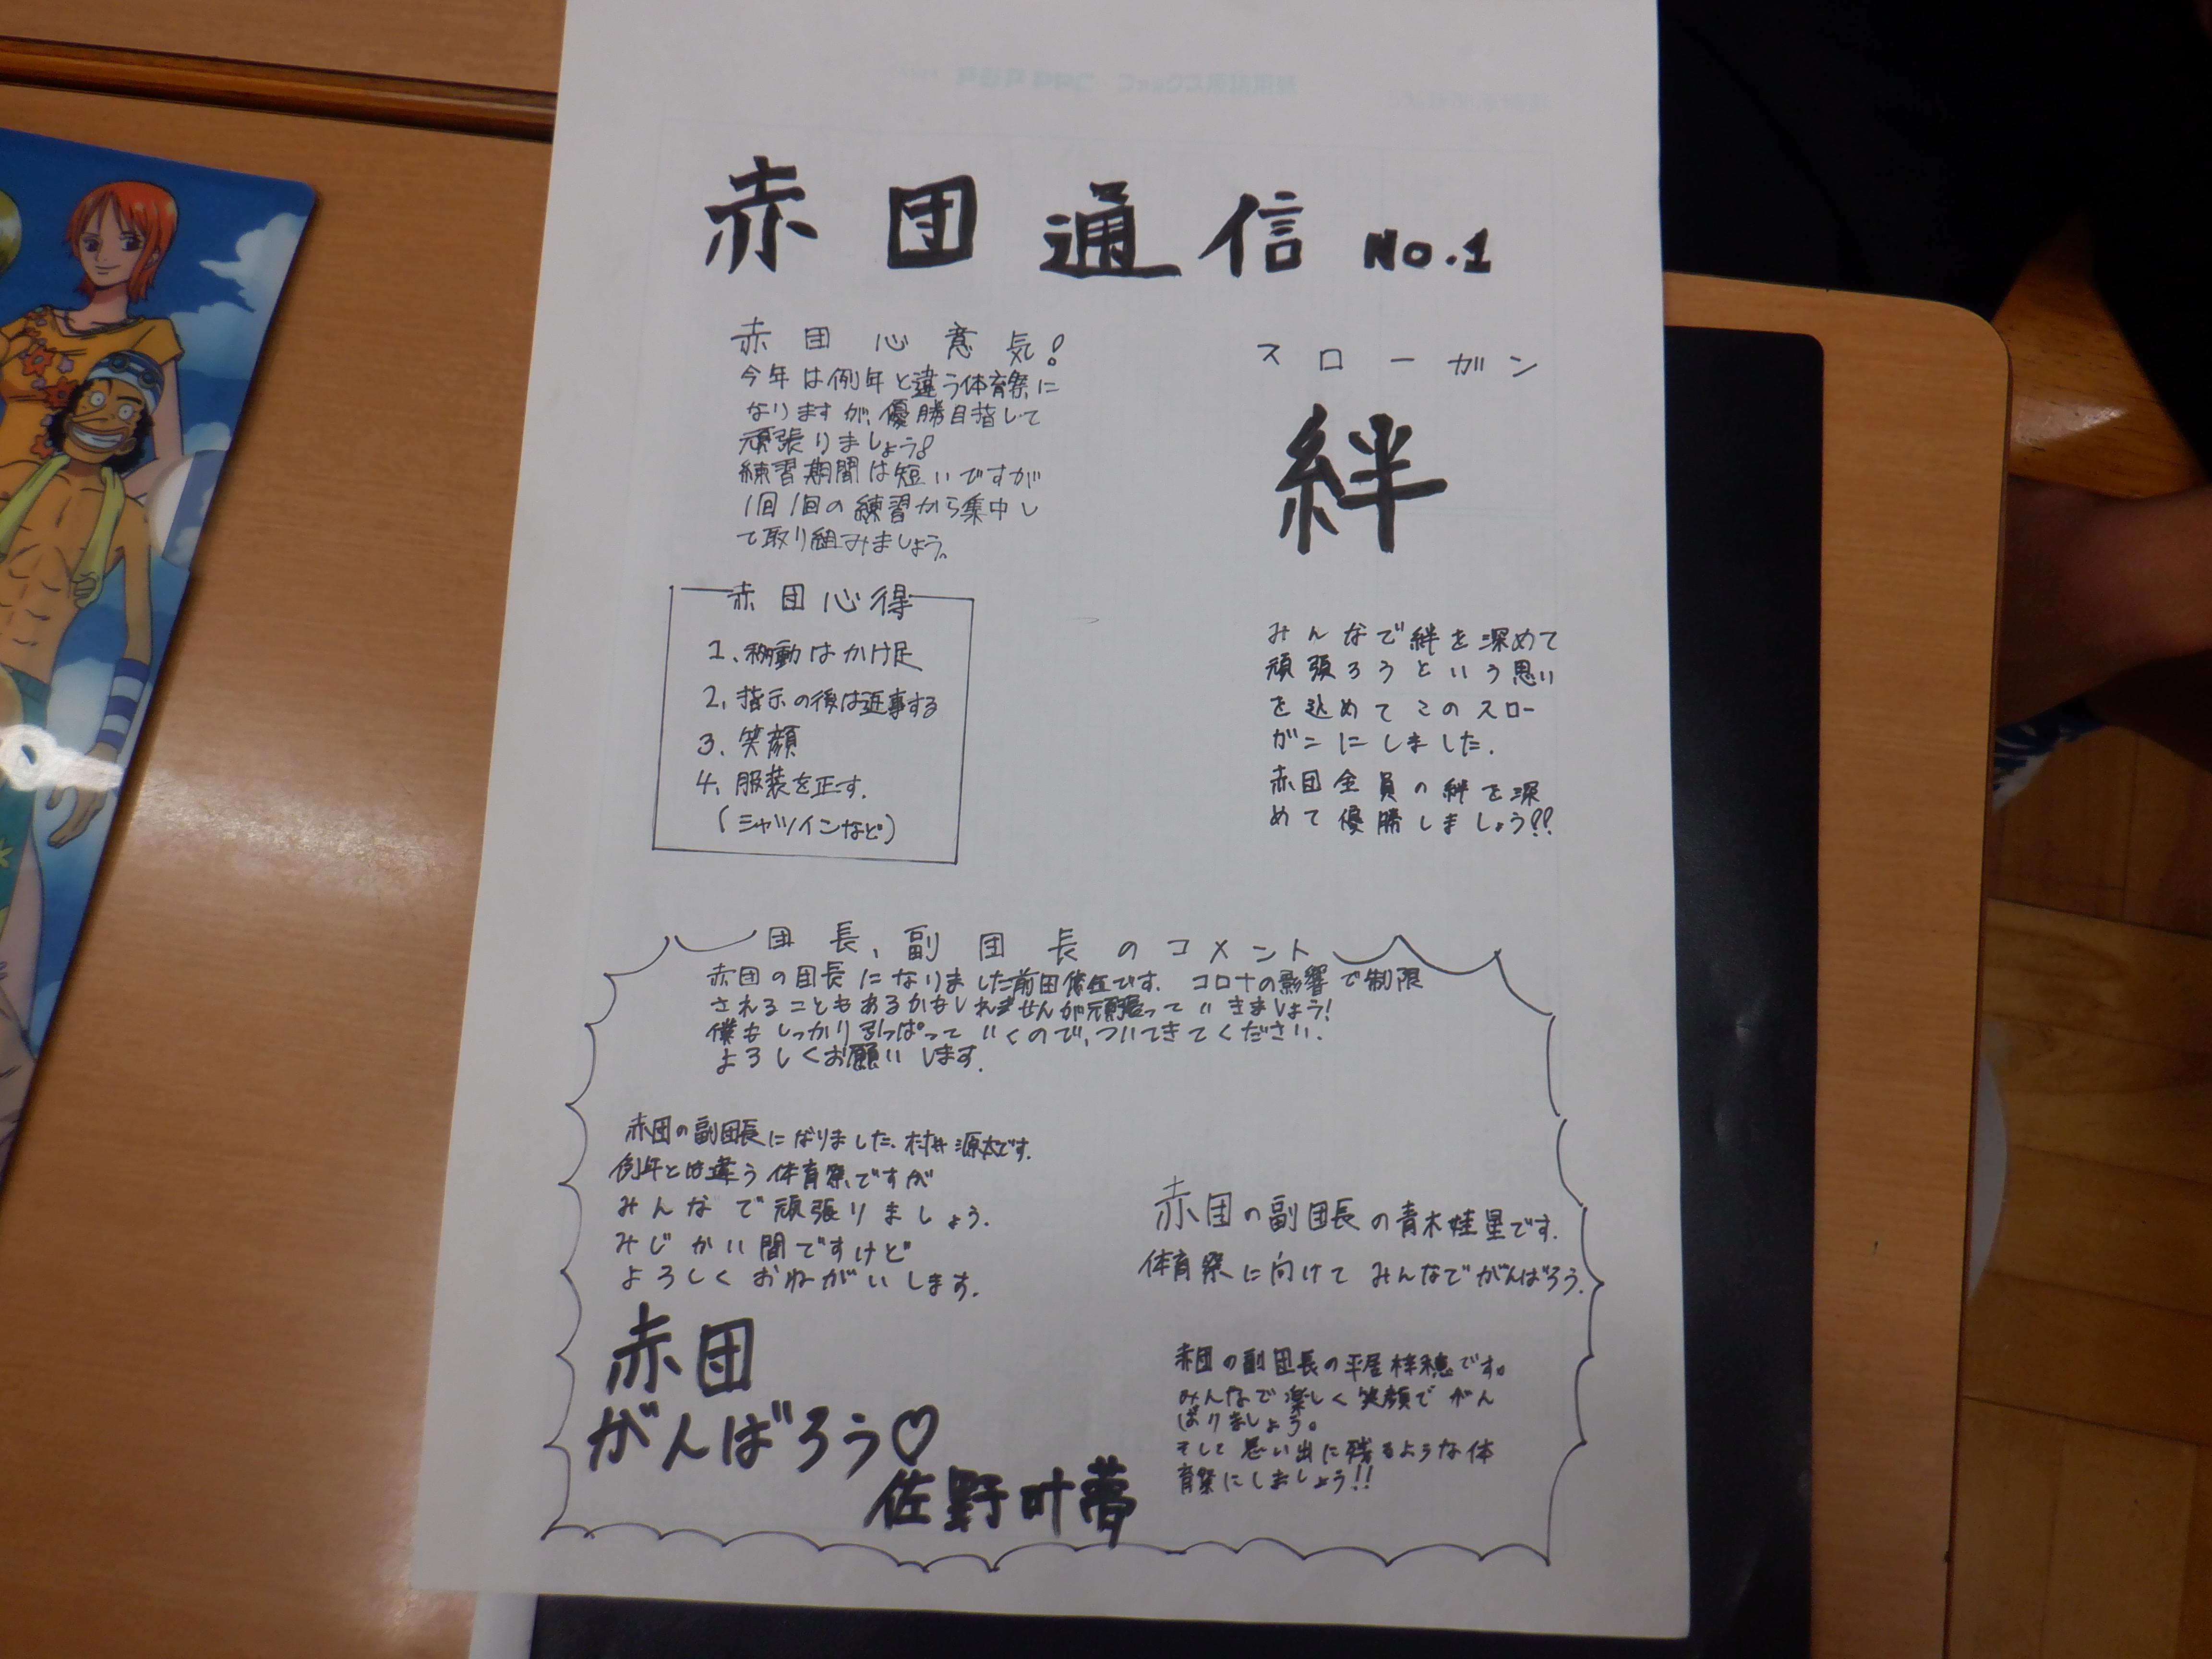 赤団通信 No.1
赤団心意気!
今年は例年と違う体育祭に
なりますが、優勝目指して
頑張りましょう!
練習期間は短いですが
1回1回の練習から集中し
て取り組みましょう。
スローガン
絆
みんなで絆を深めて
頑張ろうという思い
を込めてこのスロー
ガンにしました.
赤団全員の絆を深
めて優勝しましょう!!
赤団心得
1、移動はかけ足
2、指示の後は返事する
3、笑顔
4、服装を正す.
(シャツインなど)
団長、副団長のコメント
赤団の団長になりました前田です. コロナの影響で制限
されることもあるかもしれませんが頑張っていきましょう!
僕もしっかり引っぱっていくので、ついてきてください.
よろしくお願いします.
赤団の副団長になりました、村井 源太です.
例年とは違う体育祭ですが
みんなで頑張りましょう.
みじかい間ですけど
よろしくおねがいします.
赤団
がんばろう♡
佐野叶夢
赤団の副団長の青木です.
体育祭に向けてみんなでがんばろう.
赤団の副団長の平居です。
みんなで楽しく笑顔でがん
ばりましょう。
そして思い出に残るような体
育祭にしましょう!!